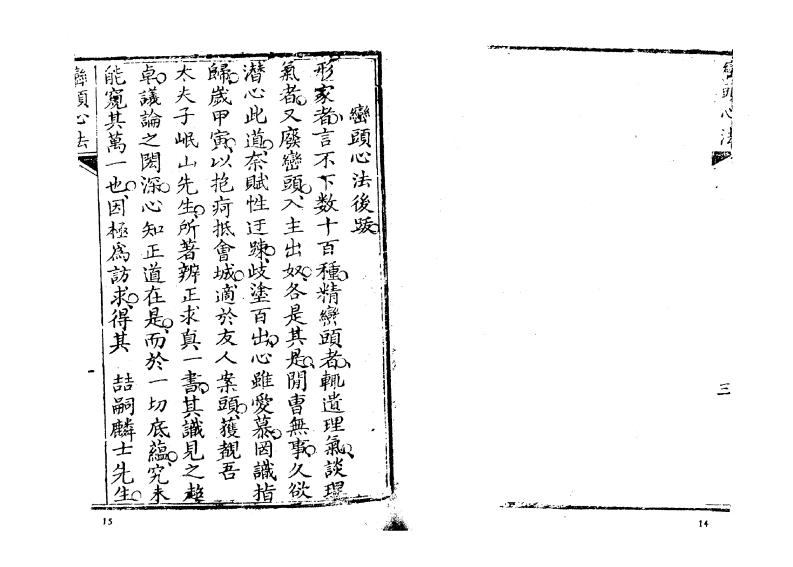 巒頭心法
三
14
巒頭心法後跋
形家者言不下数十百種精巒頭者輒遺理氣談理
氣者又廢巒頭入主出奴各是其是閒曹無事久欲
潜心此道奈賦性迂踈歧塗百出心雖愛慕罔識指
歸歲甲寅以抱疴抵會城適於友人案頭獲覩吾
太夫子岷山先生所著辨正求真一書其識見之超
卓議論之閎深心知正道在是而於一切底蘊究未
能窺其萬一也因極為訪求得其 喆嗣麟士先生
巒頭心法
15